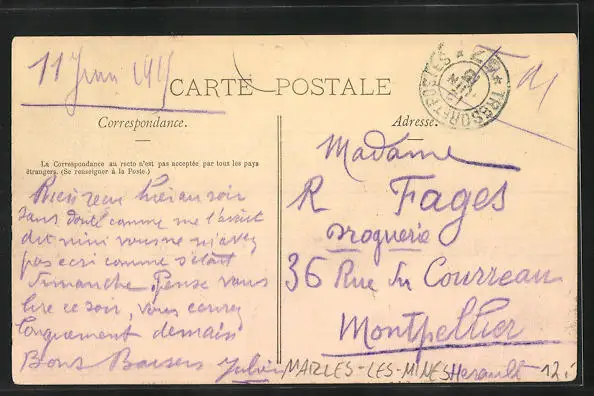 11 Juin 1915
CARTE POSTALE
TRESOR ET POSTES
F M
Correspondance.
Adresse.
La Correspondance au recto n'est pas acceptée par tous les pays
étrangers. (Se renseigner à la Poste.)
Rien reçu hier au soir
sans doute comme me l'avait
dit mini vous ne m'avez
pas écrit comme c'était
dimanche. Pense vous
lire ce soir, vous
longuement demain
Bons Baisers
Madame
R Fages
Droguerie
36 Rue du Courreau
Montpellier
Herault
MARLES-LES-MINES
12.-